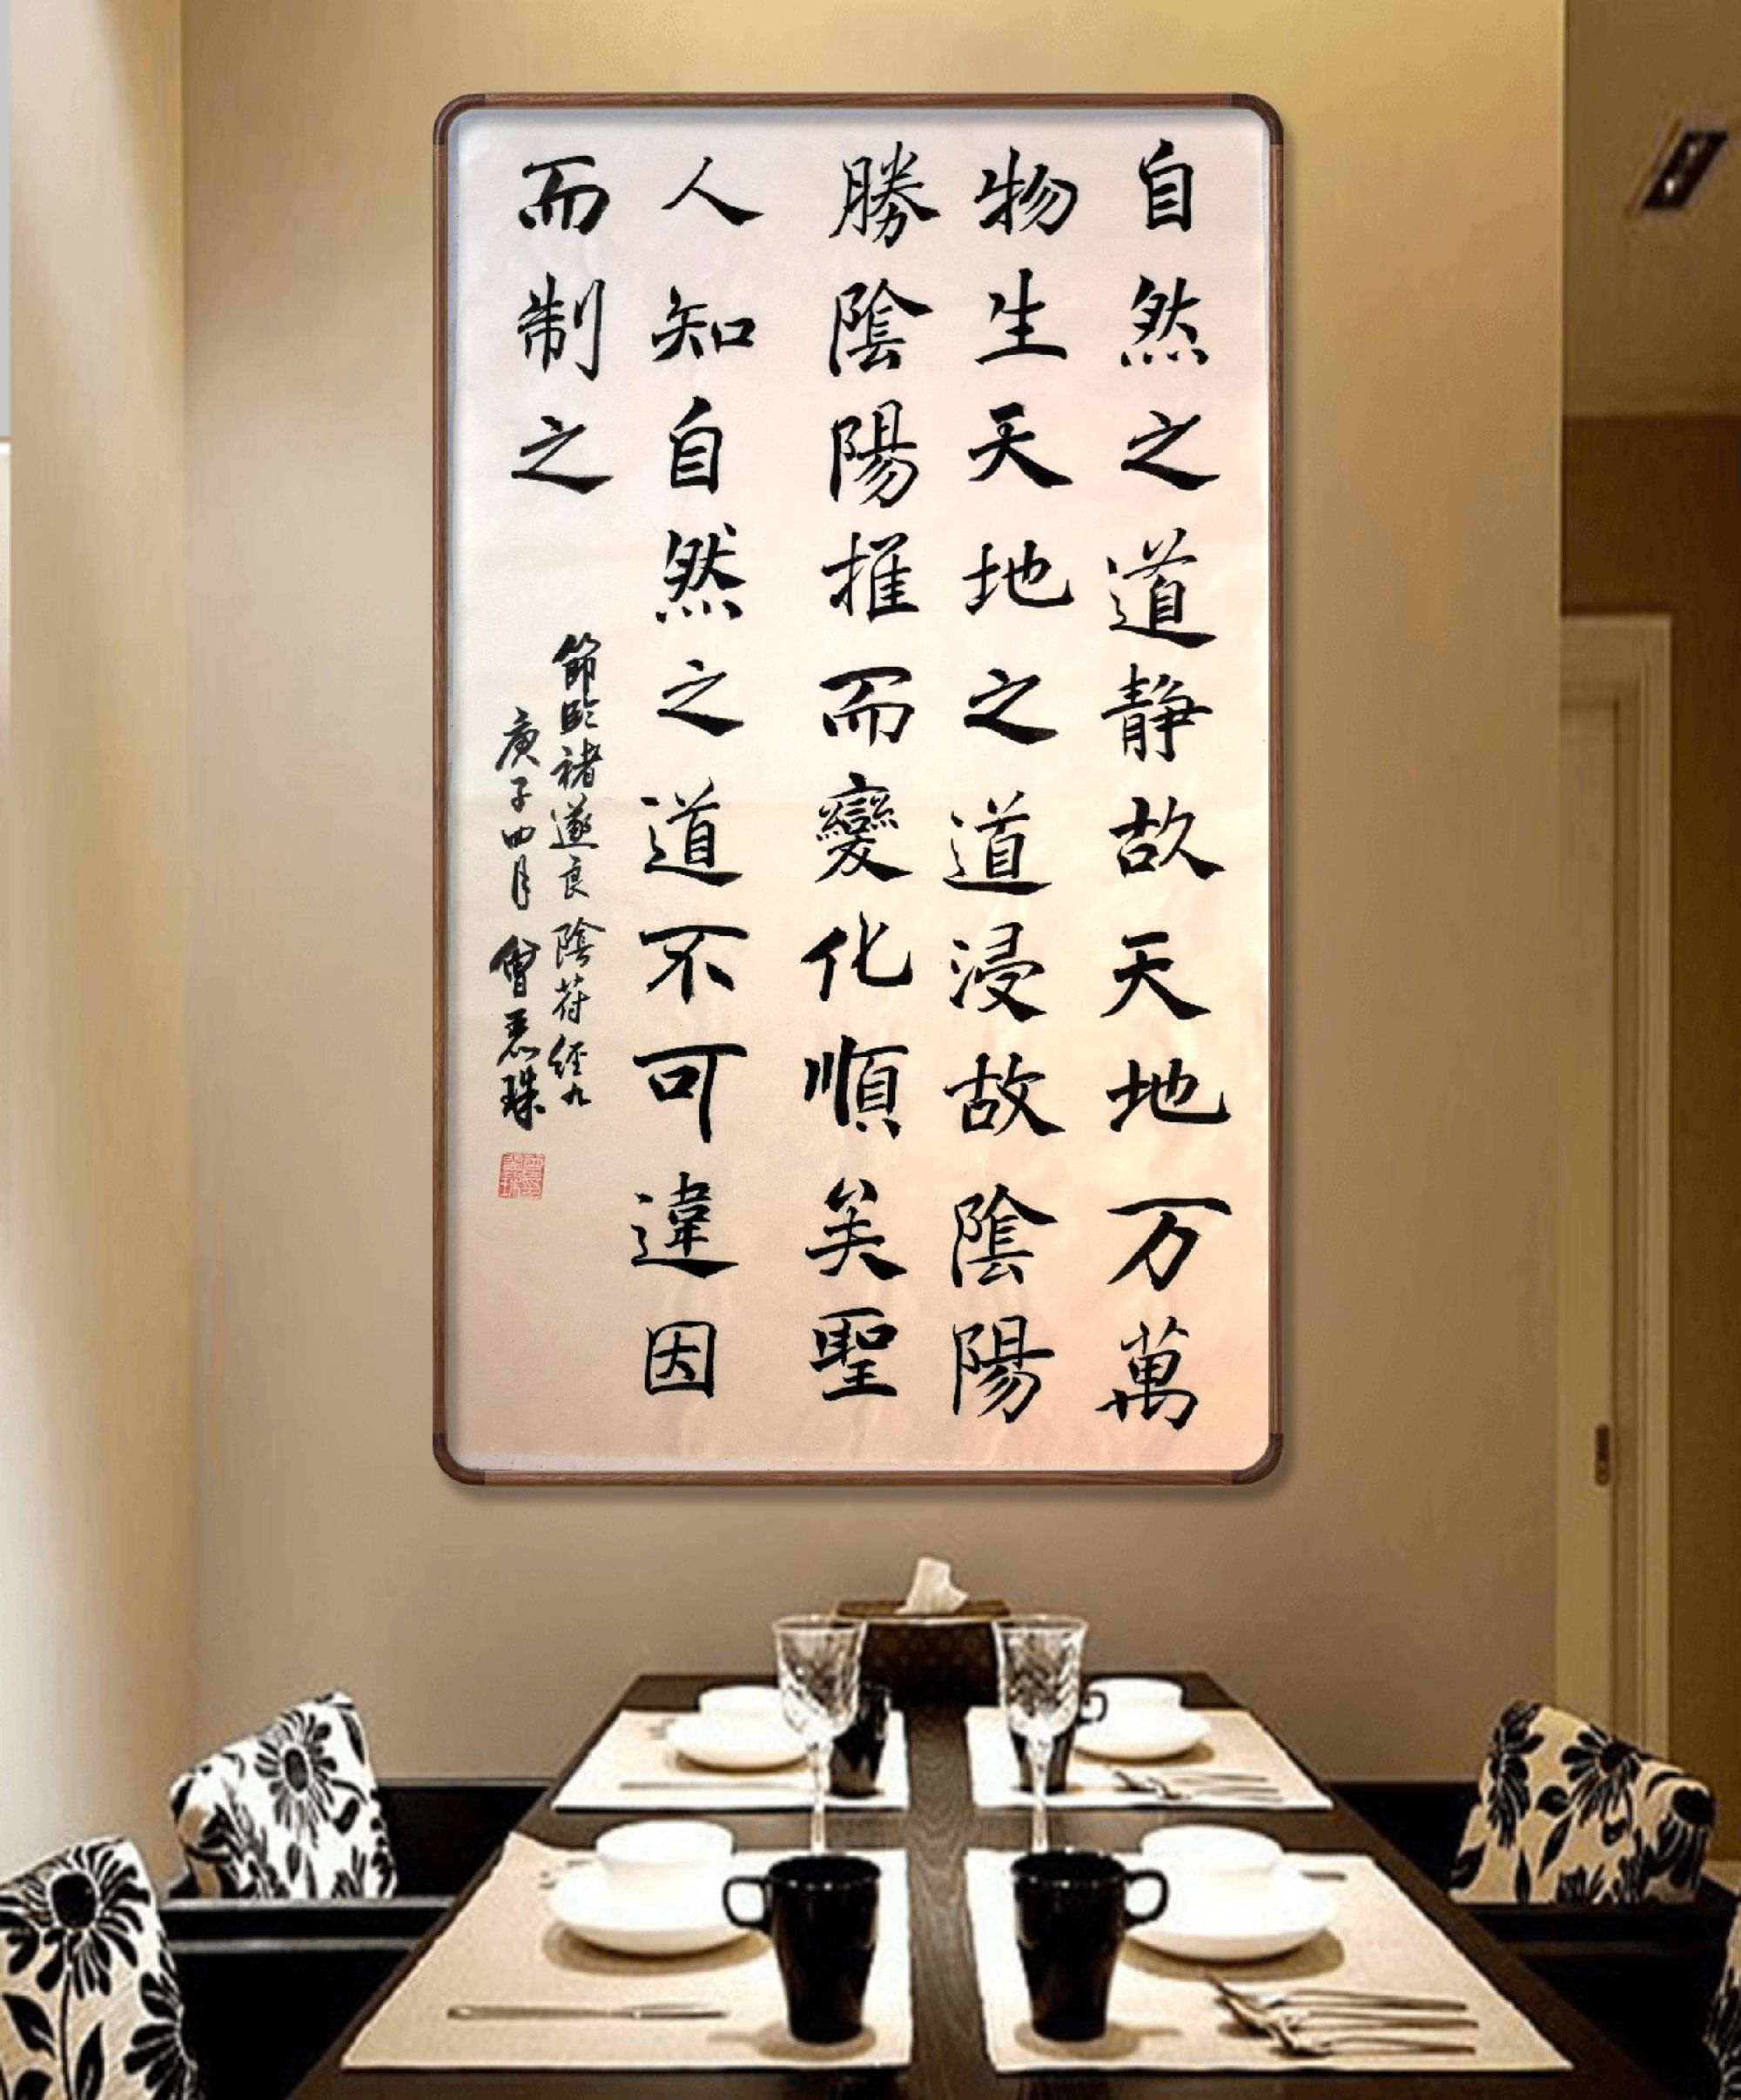 自然之道静故天地万萬
物生天地之道浸故陰陽
勝陰陽推而變化順矣聖
人知自然之道不可違因
而制之
節臨褚遂良陰符經九
庚子四月 曾珠